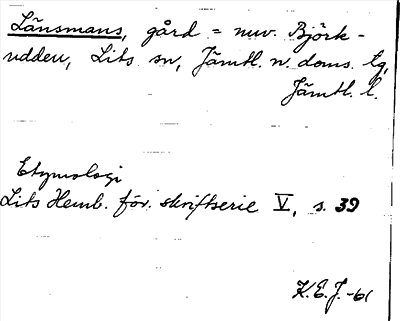 Länsmans, gård = nuv. Björk-
udden, Lits sn, Jämtl. n. doms. tg,
Jämtl. l.
Etymologi
Lits Hemb. för. skriftserie V, s. 39
K.E.J.-61